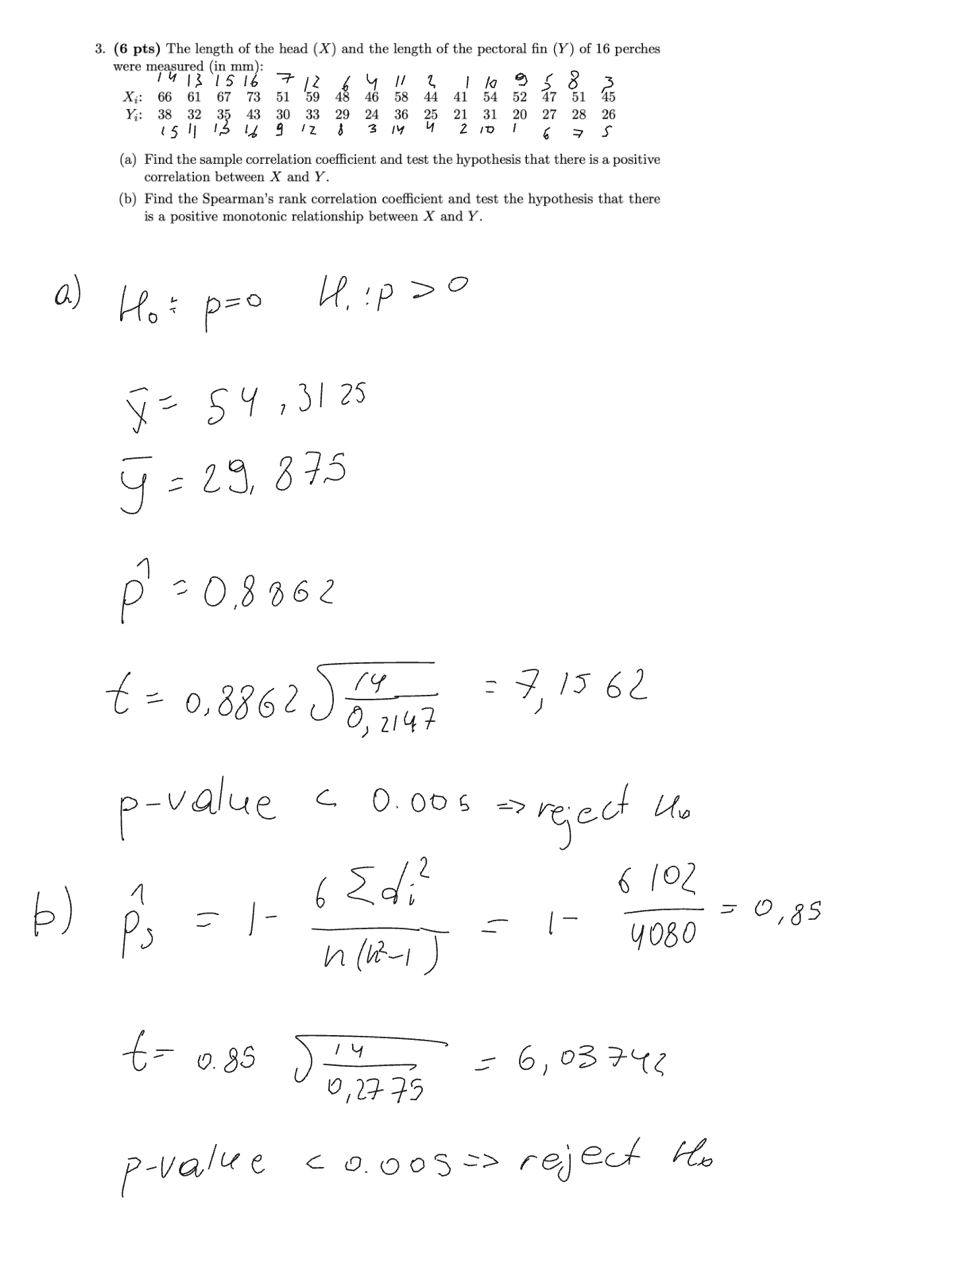 3. (6 pts) The length of the head (X) and the length of the pectoral fin (Y) of 16 perches
were measured (in mm):
14 13 15 16 7 12 6 4 11 2 1 10 9 5 8 3
Xᵢ: 66 61 67 73 51 59 48 46 58 44 41 54 52 47 51 45
Yᵢ: 38 32 35 43 30 33 29 24 36 25 21 31 20 27 28 26
15 11 13 16 9 12 8 3 14 4 2 10 1 6 7 5
(a) Find the sample correlation coefficient and test the hypothesis that there is a positive
correlation between X and Y.
(b) Find the Spearman's rank correlation coefficient and test the hypothesis that there
is a positive monotonic relationship between X and Y.
a) H₀: p=0 H₁: p>0
x̄ = 54,3125
ȳ = 29,875
p̂ = 0,8862
t = 0,8862 √(14/0,2147) = 7,1562
p-value < 0.005 => reject H₀
b) p̂ₛ = 1- 6Σdᵢ²/n(n²-1) = 1- 6 102/4080 = 0,85
t= 0.85 √(14/0,2775) = 6,03742
p-value < 0.005 => reject H₀